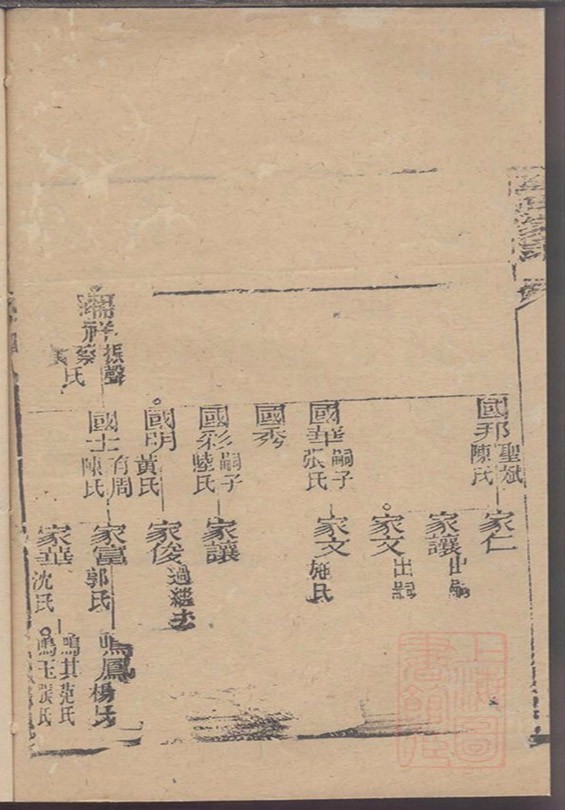 國邦 聖斌 陳氏
家仁
家讓 出嗣
家文 出嗣
國華 嗣子 張氏
家文 施氏
國秀
國彩 嗣子 陸氏
家讓
國明 黃氏
家俊 過繼去
祥 振聲 蔡氏
國士 育周 陳氏
家富 郭氏
鳴鳳 楊氏
家華 沈氏
鳴其 范氏
鳴玉 張氏